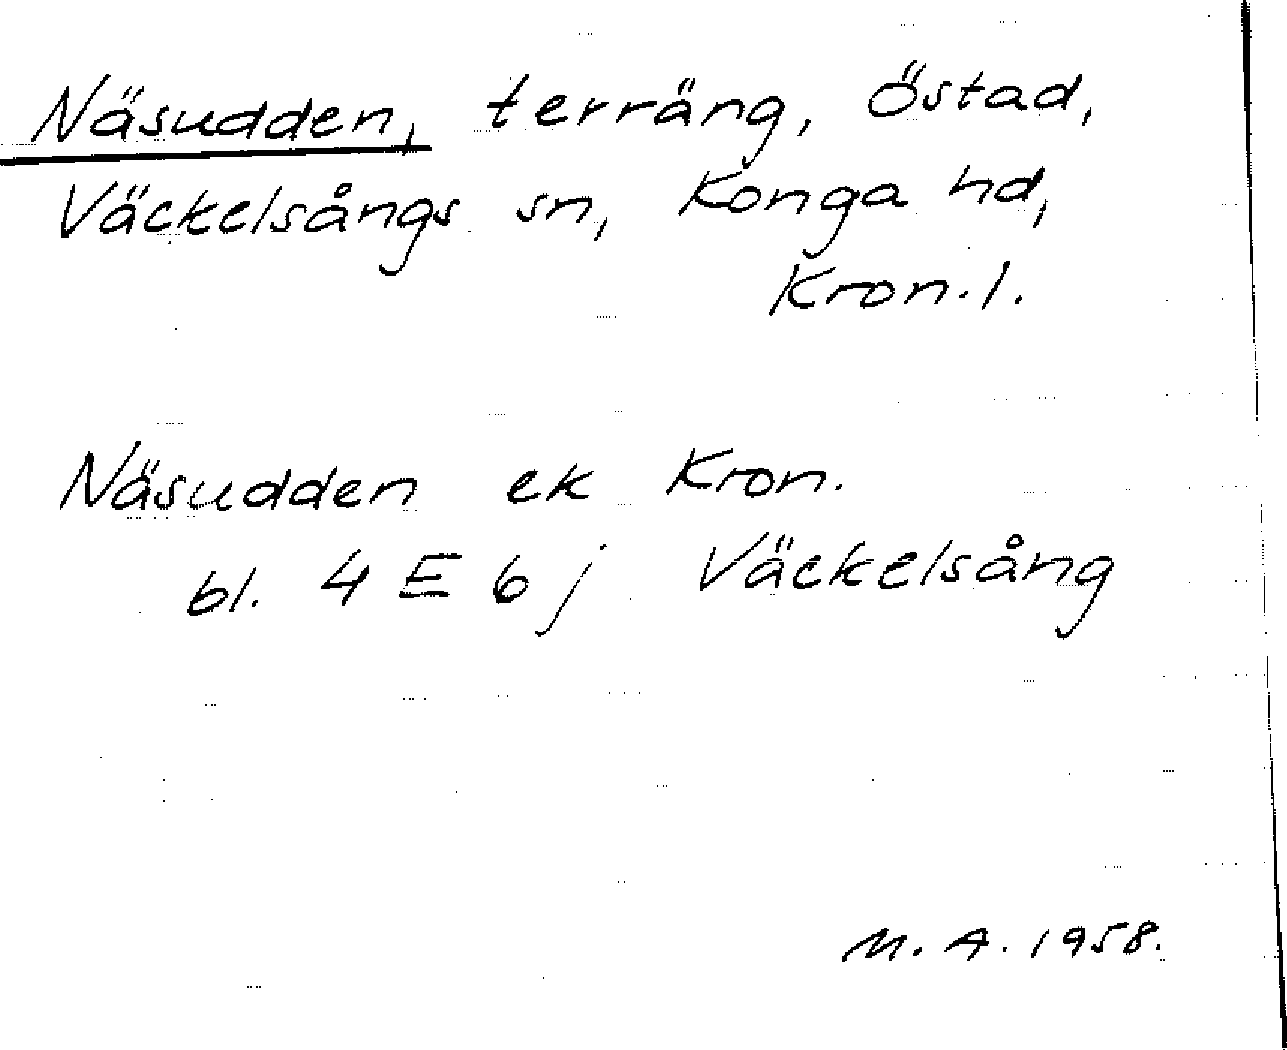 Näsudden, terräng, Östad,
Väckelsångs sn, Konga hd,
Kron. l.
Näsudden ek Kron.
bl. 4 E 6 j Väckelsång
M. A. 1958.